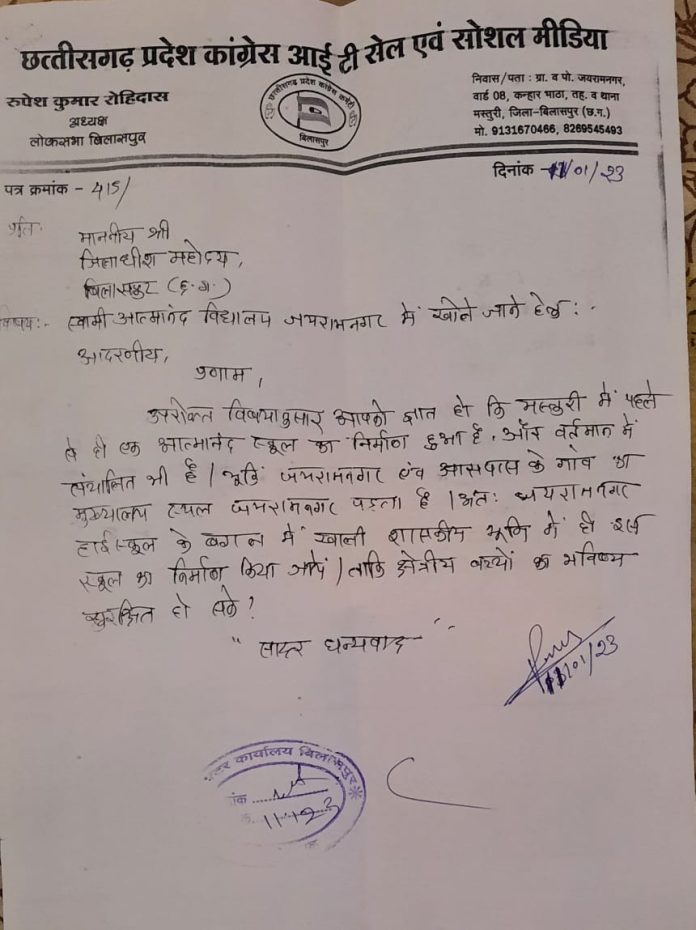 छत्तीसगढ़ प्रदेश कांग्रेस आई टी सेल एवं सोशल मीडिया
रुपेश कुमार रोहिदास
अध्यक्ष
लोकसभा बिलासपुर
छत्तीसगढ़ प्रदेश कांग्रेस कमेटी
बिलासपुर
निवास/पता : ग्रा. व पो. जयरामनगर,
वार्ड 08, कन्हार भाठा, तह. व थाना
मस्तुरी, जिला-बिलासपुर (छ.ग.)
मो. 9131670466, 8269545493
पत्र क्रमांक - 415/
दिनांक - 11/01/23
प्रति
माननीय श्री
जिलाधीश महोदय,
बिलासपुर (छ.ग.)
विषय:- स्वामी आत्मानंद विद्यालय जयरामनगर में खोले जाने हेतु :-
आदरणीय,
प्रणाम,
उपरोक्त विषयानुसार आपको ज्ञात हो कि मस्तुरी में पहले
से ही एक आत्मानंद स्कूल का निर्माण हुआ है, और वर्तमान में
संचालित भी है / चूकिं जयरामनगर एंव आसपास के गांव का
मुख्यालय स्थल जयरामनगर पड़ता है / अतः जयरामनगर
हाईस्कूल के बगल में खाली शासकीय भूमि में ही इस
स्कूल का निर्माण किया जायें / ताकि क्षेत्रीय बच्चों का भविष्य
सुरक्षित हो सके ?
" सादर धन्यवाद "
11/01/23
कार्यालय बिलासपुर